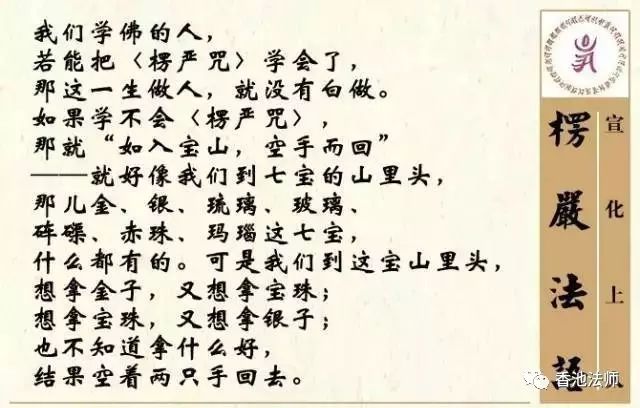 我们学佛的人，
若能把〈楞严咒〉学会了，
那这一生做人，就没有白做。
如果学不会〈楞严咒〉，
那就“如入宝山，空手而回”
——就好像我们到七宝的山里头，
那儿金、银、琉璃、玻璃、
砗磲、赤珠、玛瑙这七宝，
什么都有的。可是我们到这宝山里头，
想拿金子，又想拿宝珠；
想拿宝珠，又想拿银子；
也不知道拿什么好，
结果空着两只手回去。
楞嚴法語
宣化上人
香池法师